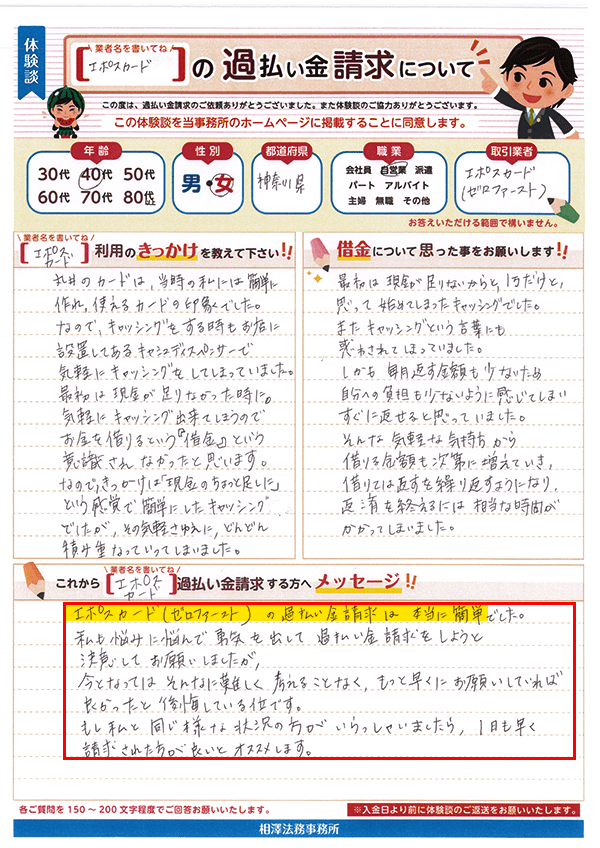 体験談
業者名を書いてね
[エポスカード]の過払い金請求について
この度は、過払い金請求のご依頼ありがとうございました。また体験談のご協力ありがとうございます。
この体験談を当事務所のホームページに掲載することに同意します。
年齢
30代 40代 50代
60代 70代 80代以上
性別
男・女
都道府県
神奈川県
職業
会社員 自営業 派遣
パート アルバイト
主婦 無職 その他
取引業者
エポスカード
(ゼロファースト)
お答えいただける範囲で構いません。
業者名を書いてね
[エポスカード]利用のきっかけを教えて下さい!!
丸井のカードは、当時の私には簡単に
作れ、使えるカードの印象でした。
なので、キャッシングをする時もお店に
設置してあるキャシュディスペンサーで
気軽にキャッシングをしてしまっていました。
最初は現金が足りなかった時に。
気軽にキャッシング出来てしまうので
お金を借りるという『借金』という
意識さえなかったと思います。
なので、きっかけは「現金のちょっと足しに」
という感覚で簡単にしたキャッシング
でしたが、その気軽さゆえに、どんどん
積み重なっていってしまいました。
借金について思った事をお願いします!!
最初は現金が足りないからと、1万だけと、
思って始めてしまったキャッシングでした。
またキャッシングという言葉にも
惑わされてしまっていました。
しかも毎月返す金額も少ないため
自分への負担も少ないように感じてしまい
すぐに返せると思っていました。
そんな気軽な気持ちから
借りる金額も次第に増えていき、
借りては返すを繰り返すようになり、
返済を終えるには相当な時間が
かかってしまいました。
業者名を書いてね
これから[エポスカード]過払い金請求する方へメッセージ!!
エポスカード(ゼロファースト)の過払い金請求は本当に簡単でした。
私も悩みに悩んで勇気を出して過払い金請求をしようと
決意してお願いしましたが、
今となってはそんなに難しく考えることなく、もっと早くにお願いしていれば
良かったと後悔している位です。
もし私と同じ様な状況の方がいらっしゃいましたら、1日も早く
請求された方が良いとオススメします。
各ご質問を150〜200文字程度でご回答お願いいたします。
※入金日より前に体験談のご返送をお願いいたします。
相澤法務事務所